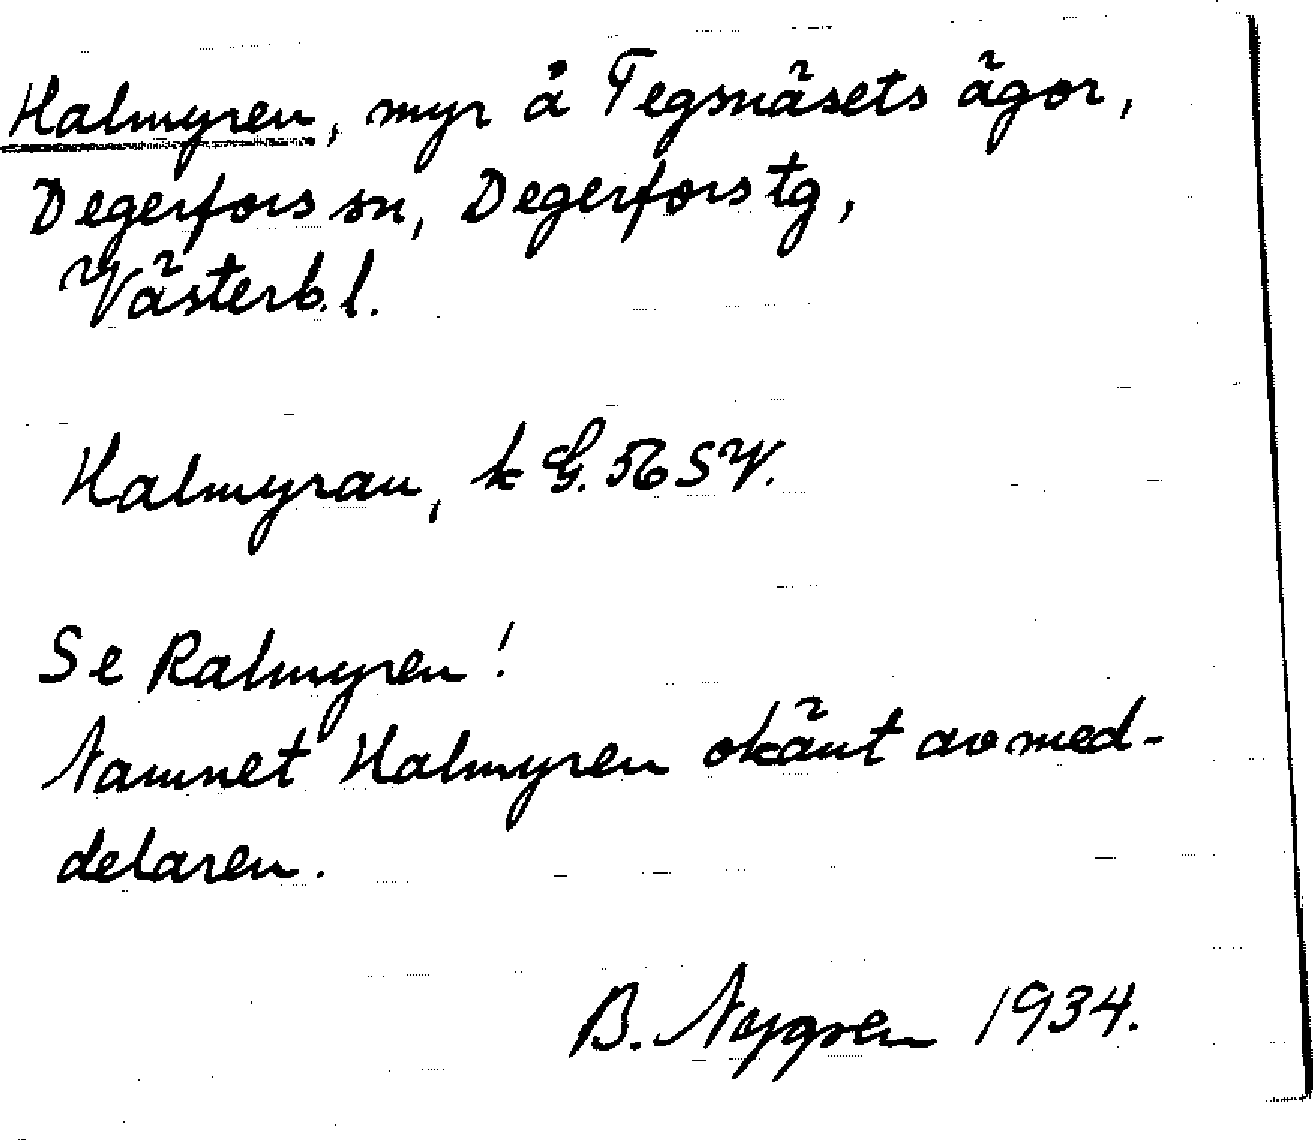 Halmyren, myr å Tegsnäsets ägor,
Degerfors sn, Degerfors tg,
Västerb. l.
Halmyran, k G. 56 SV.
Se Ralmyren!
Namnet Halmyren okänt av med-
delaren.
B. Nygren 1934.